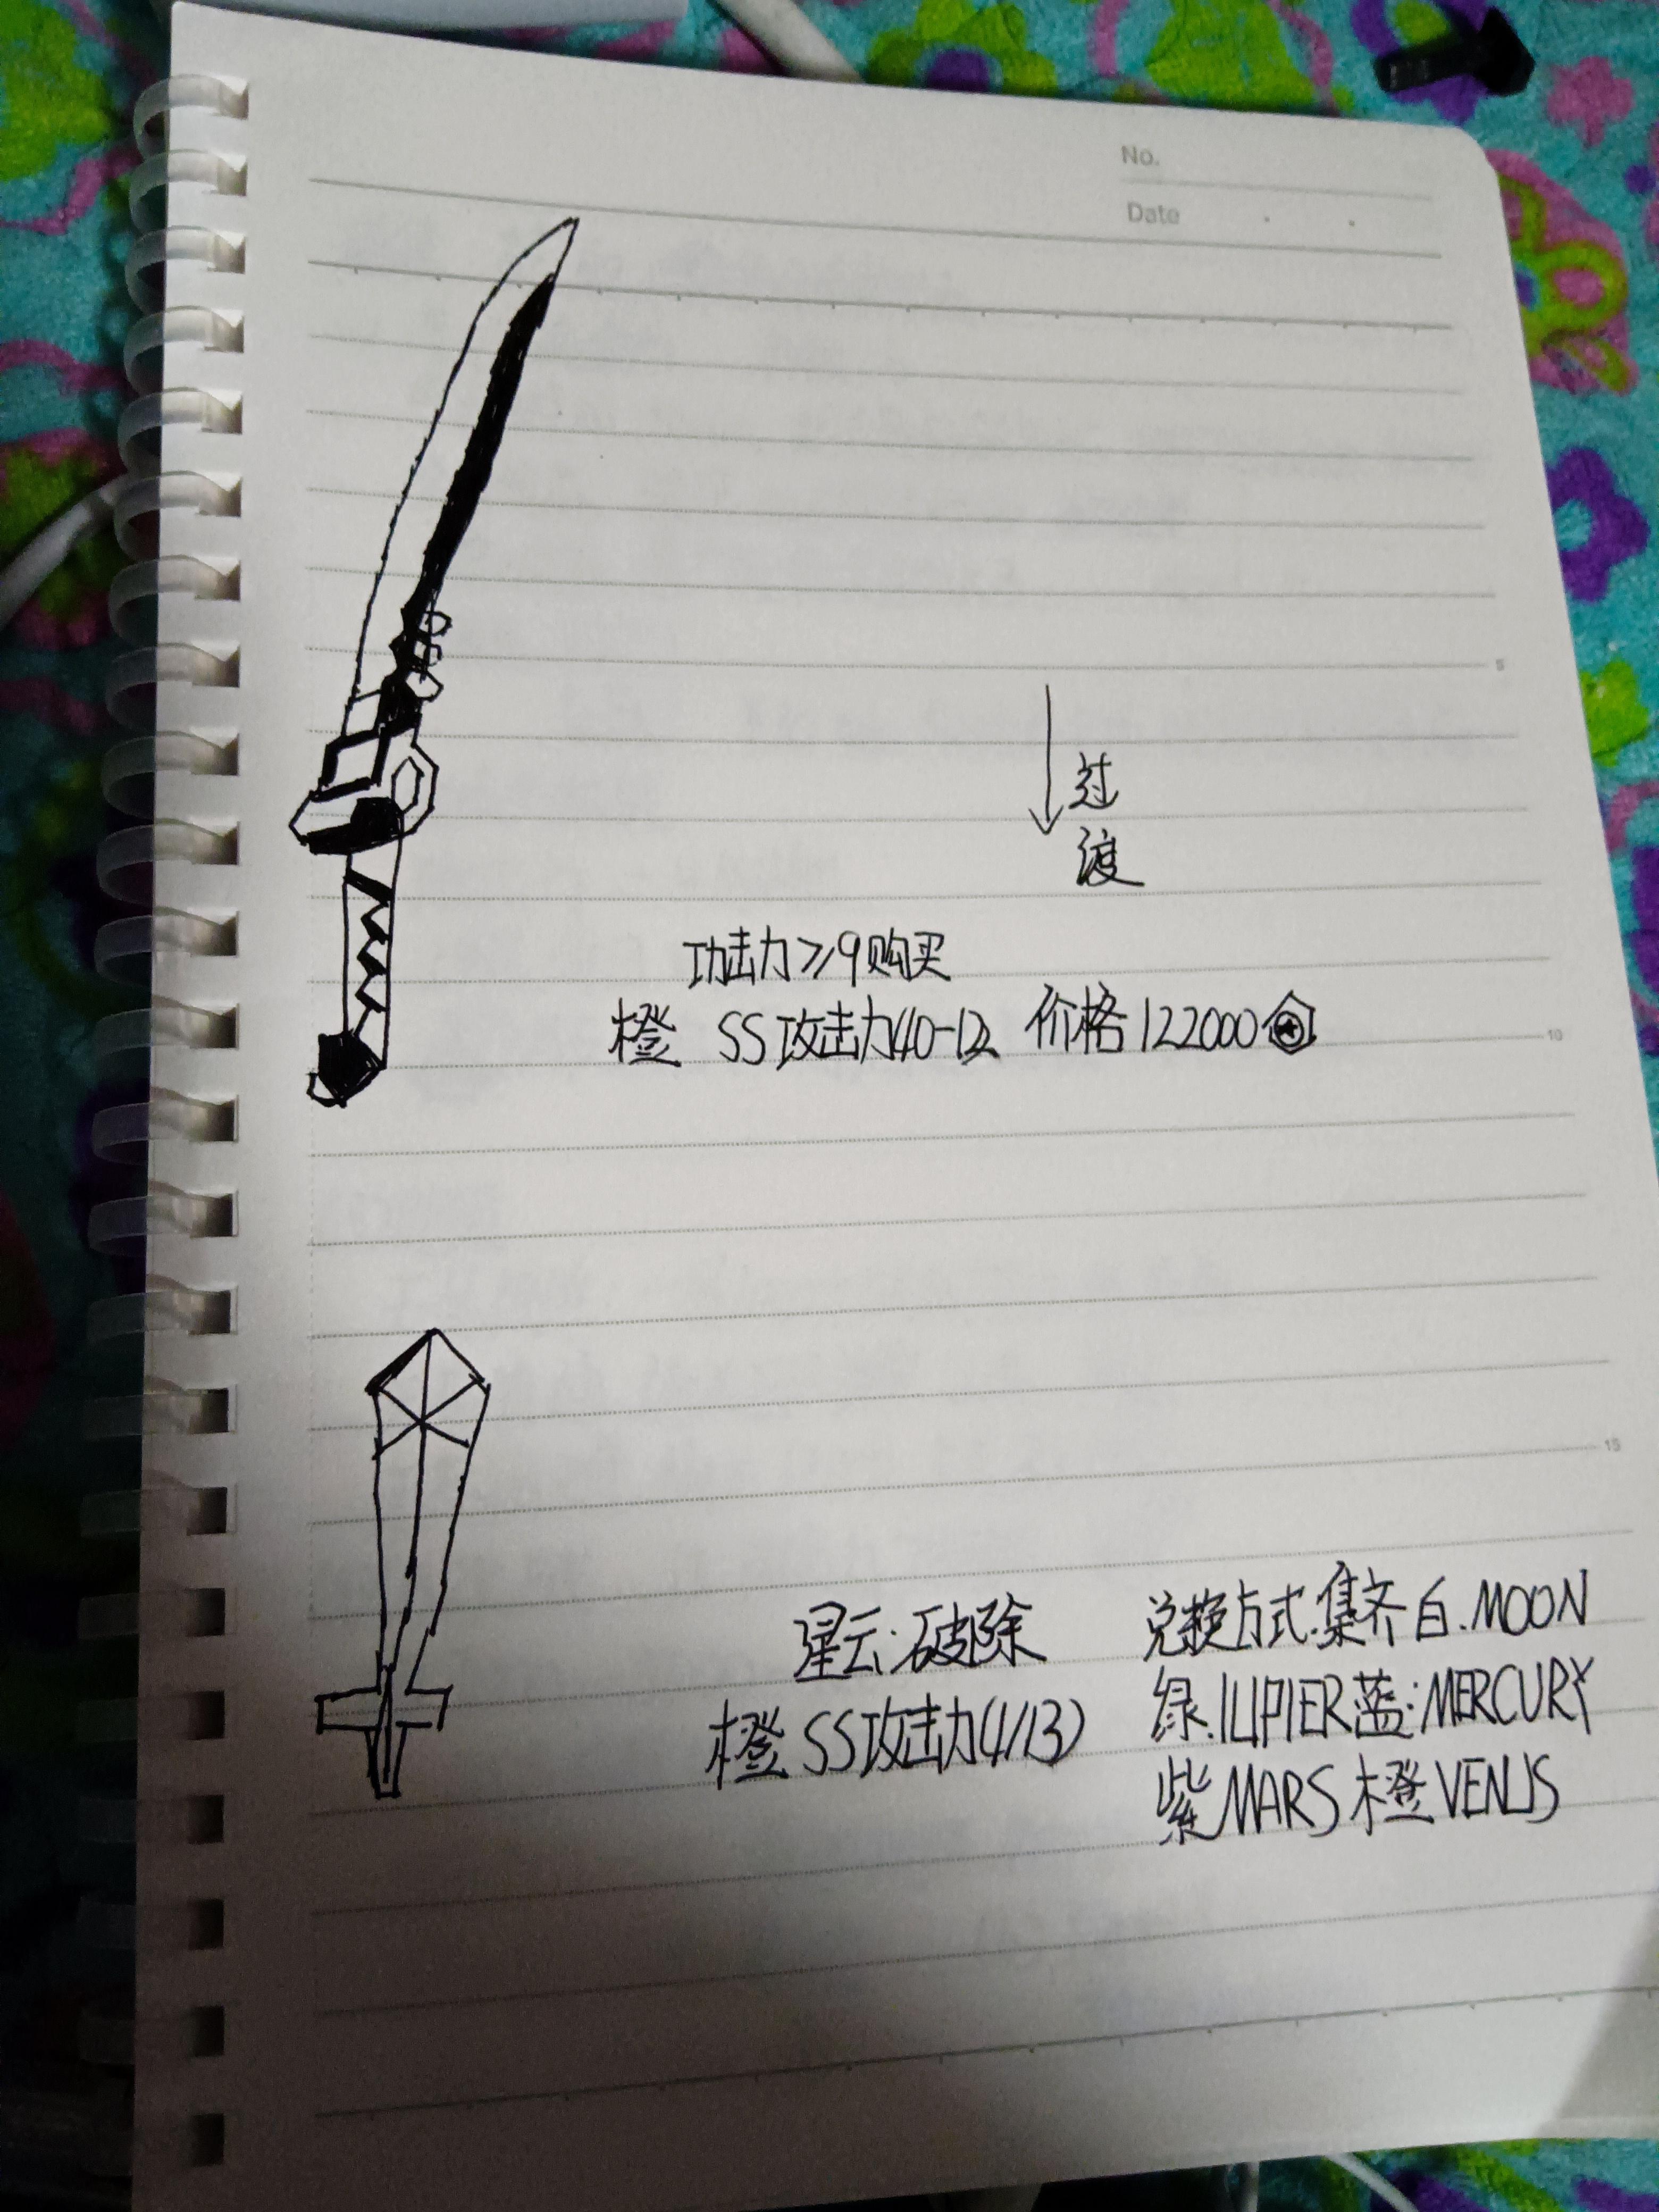 No.
Date
5
过
渡
功击力≥9购买
橙 SS攻击力40-12 价格122000
10
15
星云:破除
橙 SS攻击力(4/13)
兑换方式:集齐白.MOON
绿.IUPIER蓝:MERCURY
紫MARS橙VENUS